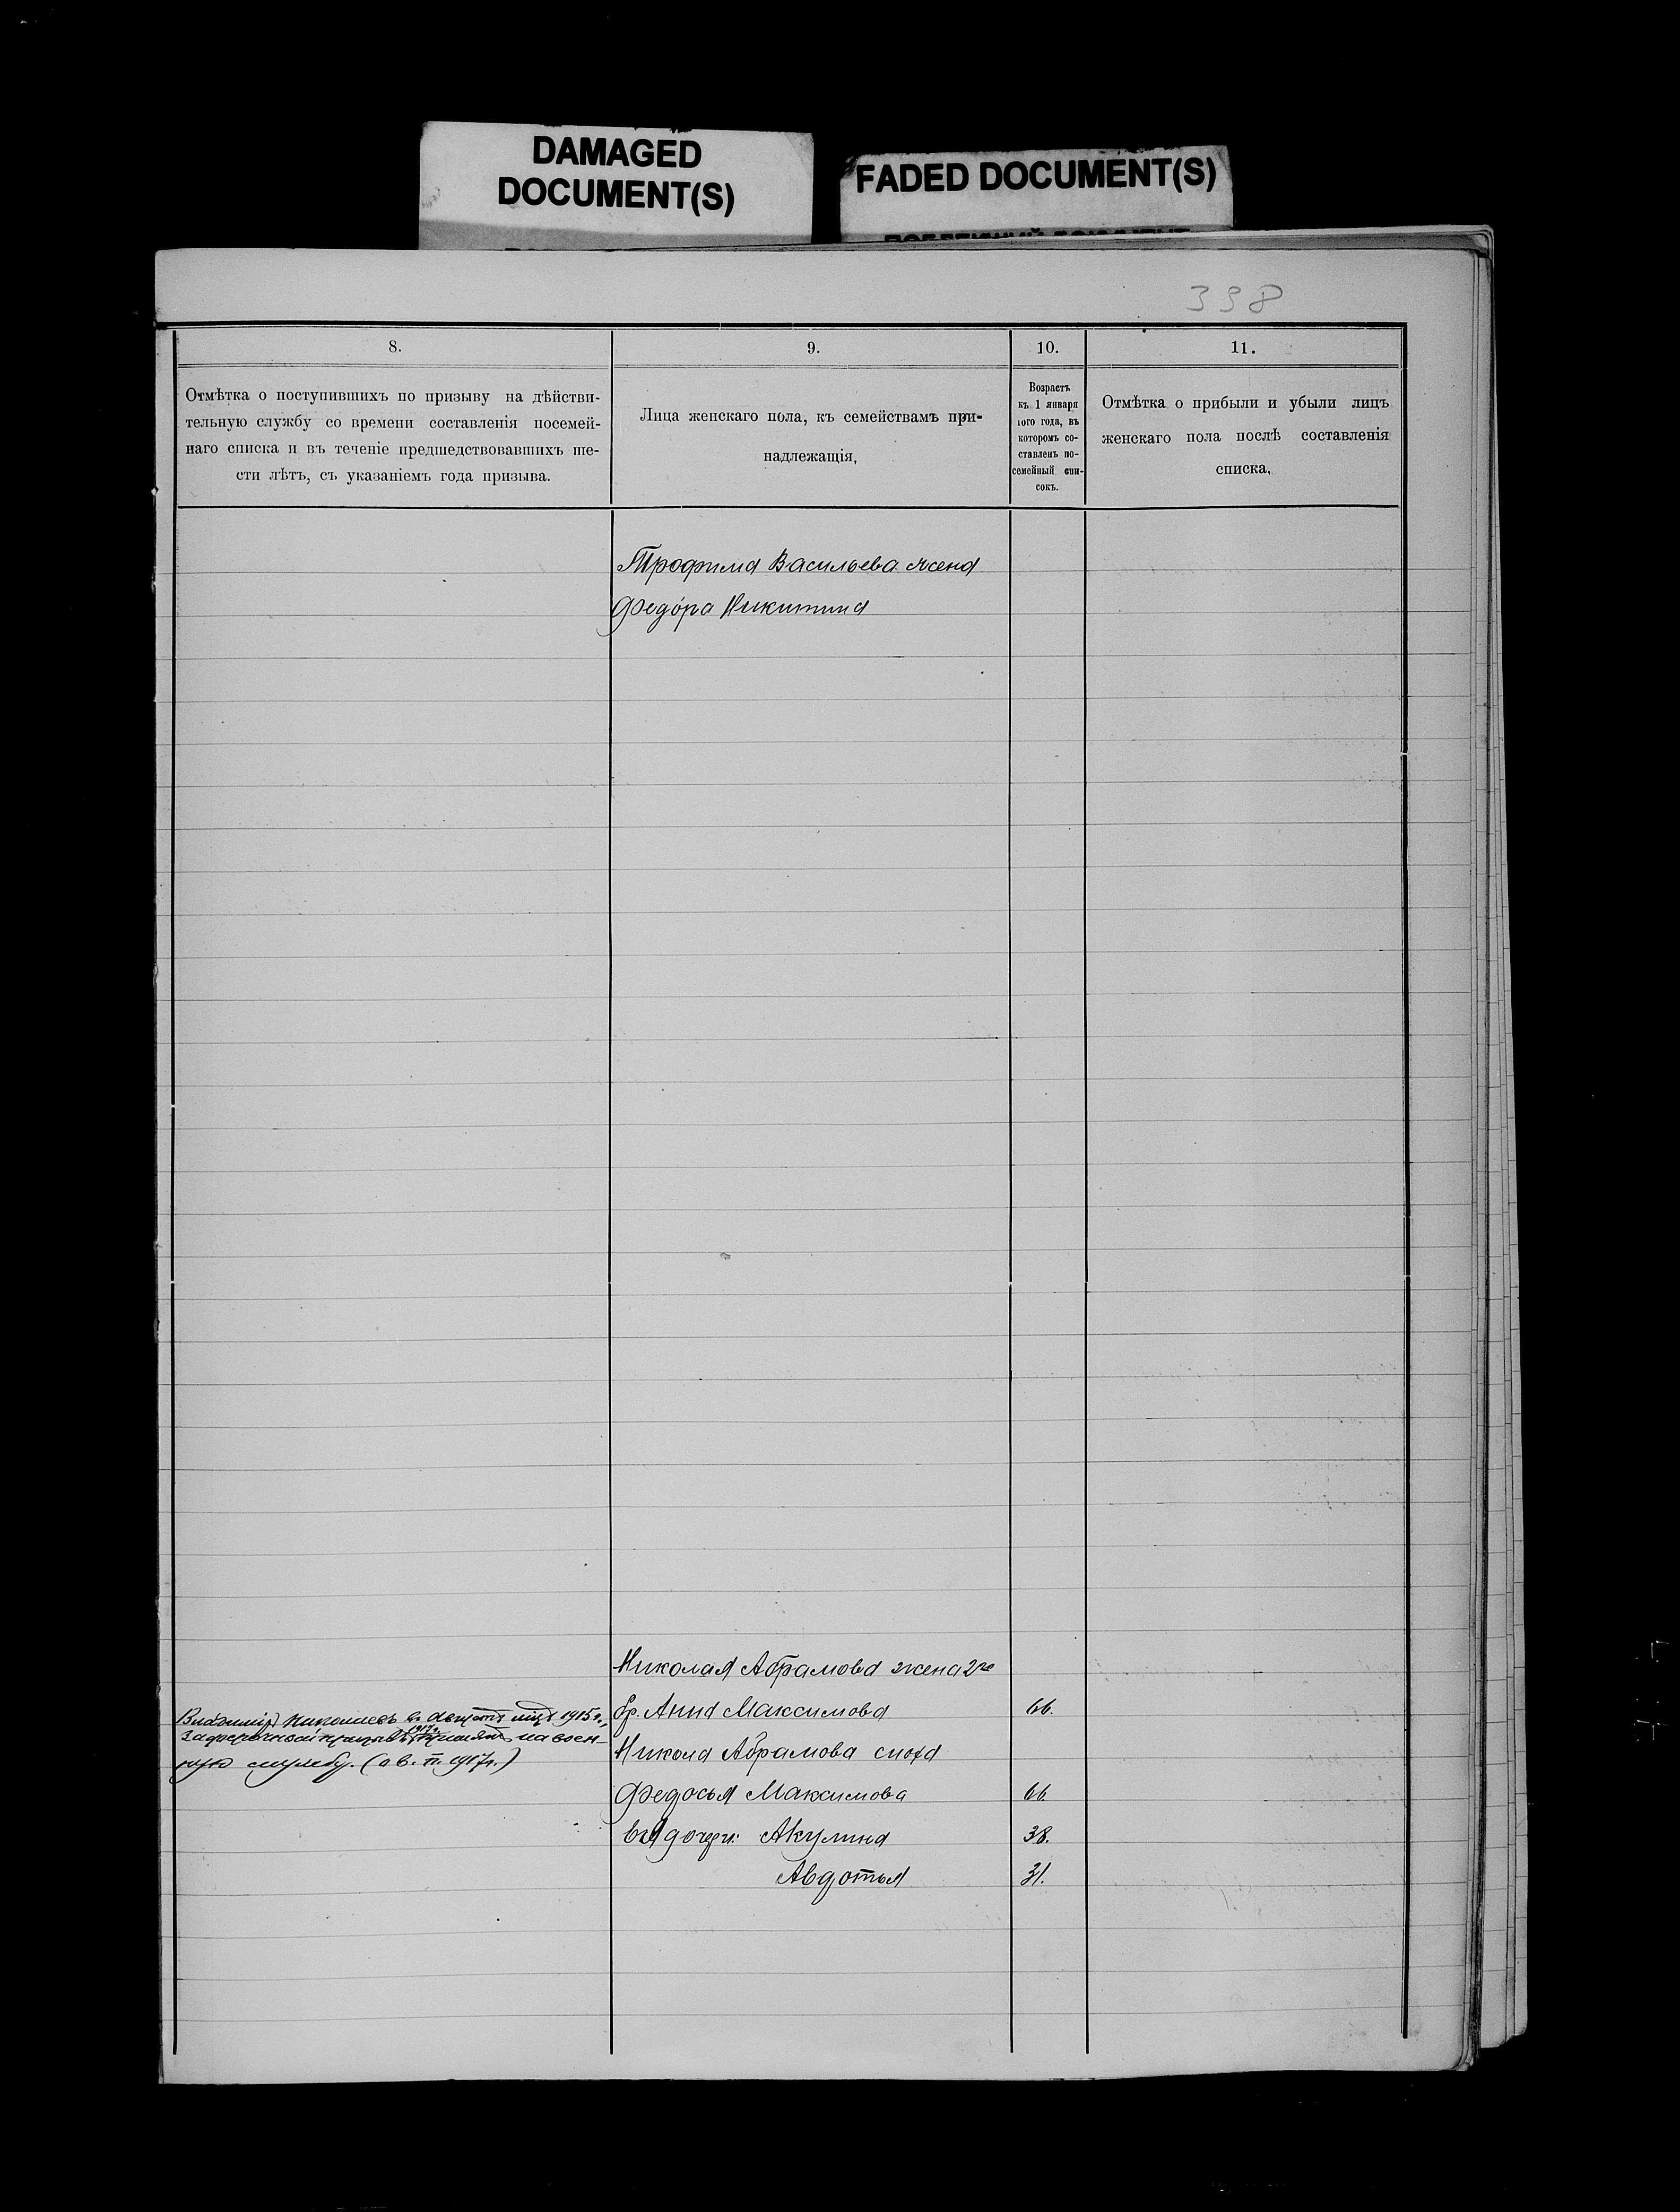 DAMAGED
DOCUMENT(S)
FADED DOCUMENT(S)
398
8.
Отмѣтка о поступившихъ по призыву на дѣйстви-
тельную службу со времени составленія посемей-
наго списка и въ теченіе предшедствовавшихъ ше-
сти лѣтъ, съ указаніемъ года призыва.
9.
Лица женскаго пола, къ семействамъ при-
надлежащія,
10.
Возрастъ
къ 1 января
того года, въ
которомъ со-
ставленъ по-
семейный спи-
сокъ.
11.
Отмѣтка о прибыли и убыли лицъ
женскаго пола послѣ составленія
списка.
Трофима Васильева жена
Федора Никитина
Николая Абрамова жена 2го
бр. Анна Максимова 66.
Владиміръ Николаевъ въ Августѣ мцѣ 1915 г.,
1917 г. на воен-
ную службу. (о в. п. 1917 г.)
Никола Абрамова сноха
Федосья Максимова 66
дочери: Акулина 38.
Авдотья 31.